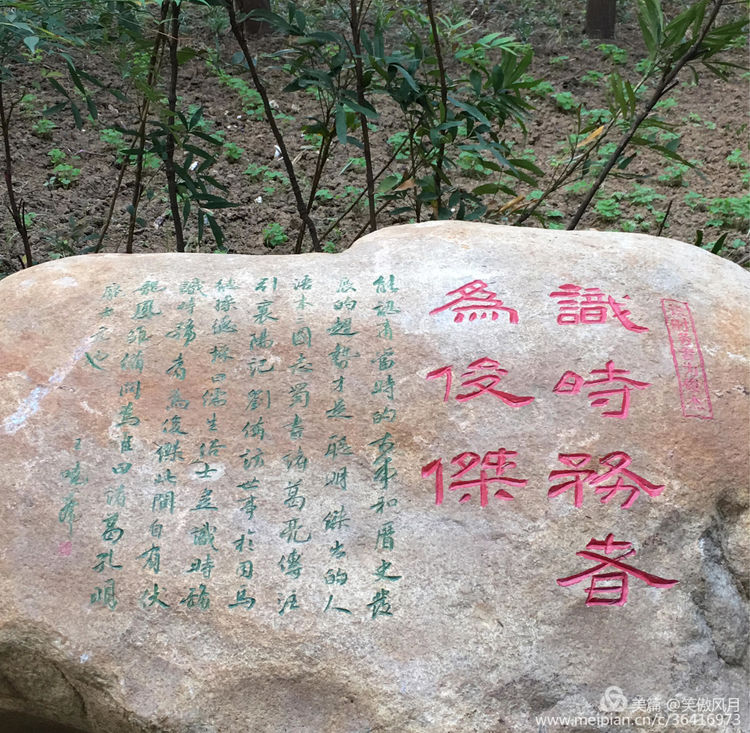 識時務者
為俊傑
能認清當時的大事和曆史發
展的趨勢才是聰明傑出的人
語本國志蜀書諸葛亮傳注
引襄陽記劉備訪世事於司馬
德操德操曰儒生俗士豈識時務
識時務者為俊傑此間自有伏
龍鳳雛備問為誰曰諸葛孔明
龐士元也
美篇 @笑傲风月
www.meipian.cn/c/36416973